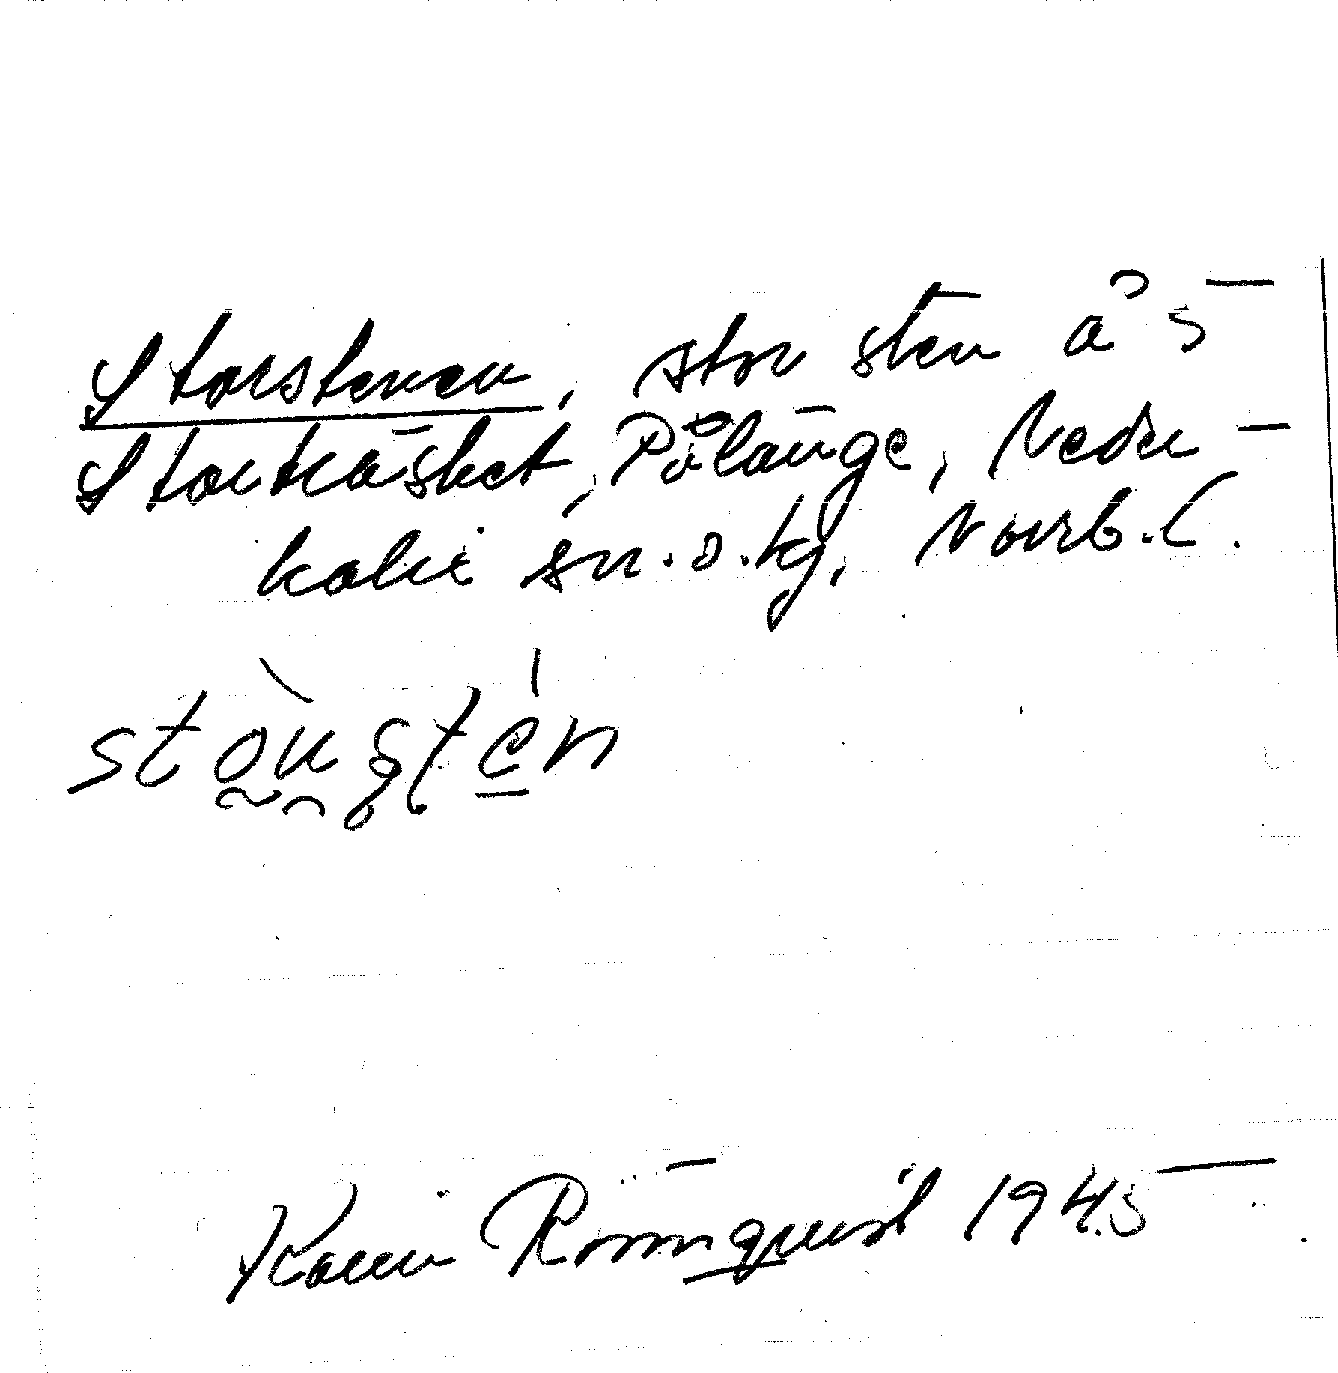 Storstenen, stor sten å 5
Storträsket, Pålänge, Neder-
kalix sn. o. kg, Norrb. L.
Karin Rönnquist 1945